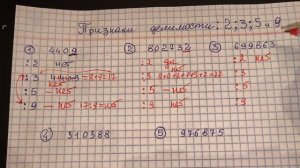 Признаки делимости: 2; 3; 5 и 9.
① 4409
② 802732
③ 699863
:2 нет
:2 да
:2 нет
:3 4+4+0+9=8+9=17
нет
:3 8+0+2+7+3+2=22
нет
:3 нет
:5 – нет
:5 – нет
:5 нет
:9 – нет 17:9=нет
:9 нет
:9 нет
④ 310388
⑤ 976875